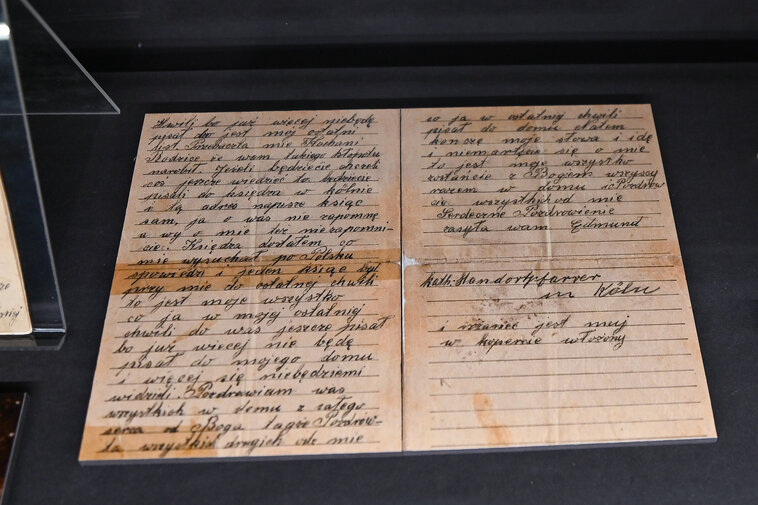 Kwilj bo już więcej niebędę
pisał do jest mój ostatni
list Przebaczta mie Kochani
Rodzice że wam takiego kłopotu
narobił. Jeżeli będziecie chcieli
coś jeszcze wiedzieć to będziecie
pisali do księdza w kölnie
a tą adres napisze ksiąc
sam, ja o was nie zapomnę
a wy o mie tez nie zapomni-
cie. Księdza dostałem co
mie wysuchał po Polsku
spowiedzi i jeden ksiąc był
przy mie do ostatnij chwili
to jest moje wszystko
co ja w mojej ostatnij
chwili do was jeszcze pisał
bo już więcej nie będę
pisał do mojego domu
i więcej się niebędziemi
widzieli. Pozdrawiam was
wszystkich w domu z całego
serca od Boga tagże Pozdrów-
ta wszystkich drugich ode mie
co ja w ostatnij chwili
pisał do domu
kończę moje słowa i idę
i niemartwcie się o mie
to jest moje wszystko
zostańcie z Bogiem wszyscy
razem w domu i Pozdrów
cie wszystkich od mie
Serdeczne Pozdrowienie
zasyła wam Edmund
Kath. Standortpfarrer
in Köln
i jest muj
w kopercie włozony